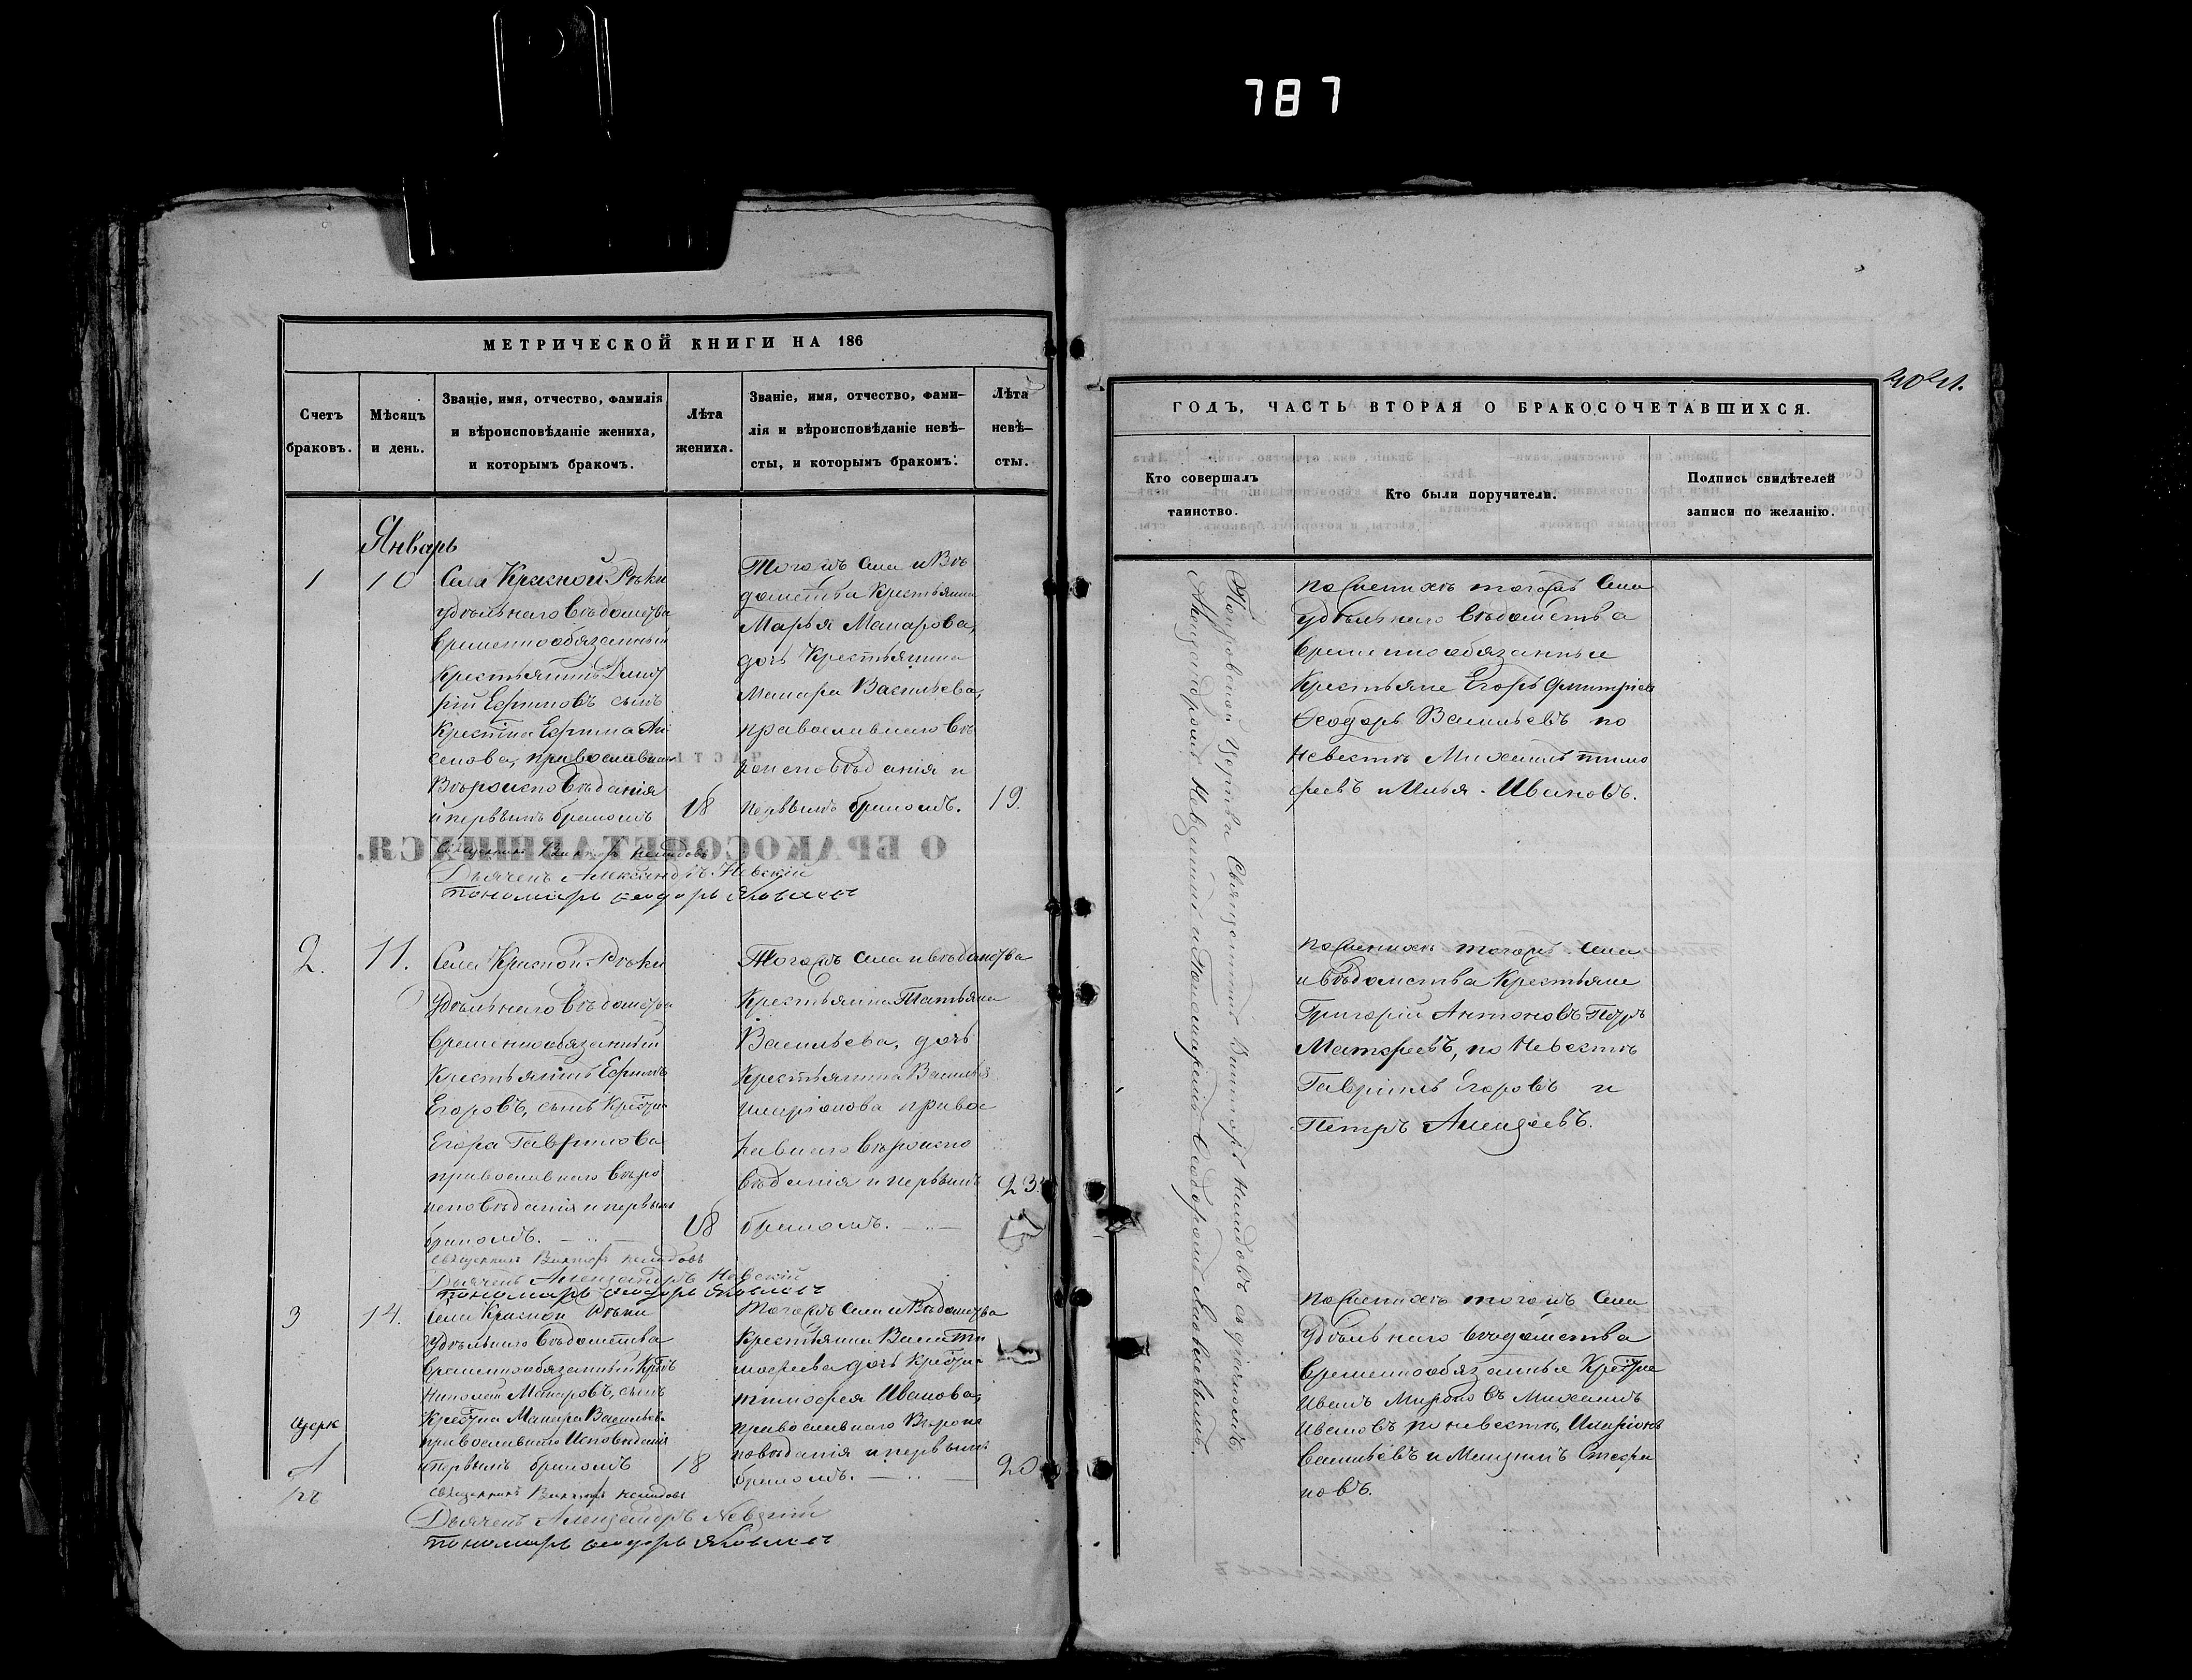 787
МЕТРИЧЕСКОЙ КНИГИ НА 186
Счетъ браковъ.
Мѣсяцъ и день.
Званіе, имя, отчество, фамилія
и вѣроисповѣданіе жениха,
и которымъ бракомъ.
Лѣта жениха.
Званіе, имя, отчество, фами-
лія и вѣроисповѣданіе невѣ-
сты, и которымъ бракомъ.
Лѣта невѣ-
сты.
Январь
1
10
Села Красной Рѣки
удѣльнаго вѣдомства
временнообязанный
Крестьянинъ Димит
рій Ефимовъ сынъ
Крестіна Ефима
православнаго
Вѣроисповѣданія
и первымъ бракомъ
18
Того жъ села и Вѣ
домства Крестьянка
Марья Макарова,
дочь Крестьянина
Макара Васильева,
православнаго вѣ
роисповѣданія и
первымъ бракомъ.
19.
О БРАКОСОЧЕТАВШИХСЯ.
Священникъ Викторъ
Дьячекъ Александръ Невскій
Пономарь Ѳеодоръ
2.
11.
Села Красной Рѣки
Удѣльнаго вѣдомства
временнообязанный
Крестьянинъ Ефимъ
Егоровъ, сынъ
Егора Гаврилова
православнаго вѣро
исповѣданія и первымъ
бракомъ.
18
Того жъ села и вѣдомства
Крестьянка Татьяна
Васильева, дочь
Крестьянина Василья
Иларіонова правос
лавнаго вѣроиспо
вѣданія и первымъ
бракомъ.
23.
Священникъ Викторъ
Дьячекъ Александръ Невскій
Пономарь Ѳеодоръ
3
14.
Села Красной Рѣки
удѣльнаго вѣдомства
временнообязанный
Николай Макаровъ, сынъ
Макара Васильева
православнаго Исповѣданія
и первымъ бракомъ
18
Того жъ села и Вѣдомства
Крестьянка Васса Ти
моѳеева дочь
Тимофея Иванова,
православнаго Вѣроис
повѣданія и первымъ
бракомъ.
20
Священникъ Викторъ
Дьячекъ Александръ Невскій
Пономарь Ѳеодоръ
ГОДЪ, ЧАСТЬ ВТОРАЯ О БРАКОСОЧЕТАВШИХСЯ.
Кто совершалъ
таинство.
Кто были поручители.
Подпись свидѣтелей
записи по желанію.
Покровской Церкви Священникъ Викторъ съ дьячкомъ
Александромъ Невскимъ и Пономаремъ Ѳеодоромъ
по Женихѣ тогожъ села
удѣльнаго вѣдомства
временнообязанные
Крестьяне Егоръ Димитріевъ
Ѳеодоръ Васильевъ по
Невестѣ Михаилъ Тимо
феевъ и Илья Ивановъ.
по Женихѣ тогожъ села
и вѣдомства Крестьяне
Григорій Антоновъ Петръ
Матфеевъ, по Невестѣ
Гавріилъ Егоровъ и
Петръ Алексѣевъ.
по Женихѣ тогожъ села
удѣльнаго вѣдомства
временнообязанные
Иванъ Мироновъ Михаилъ
Ивановъ по невестѣ Иларіонъ
Васильевъ и Максимъ Стефа
новъ.